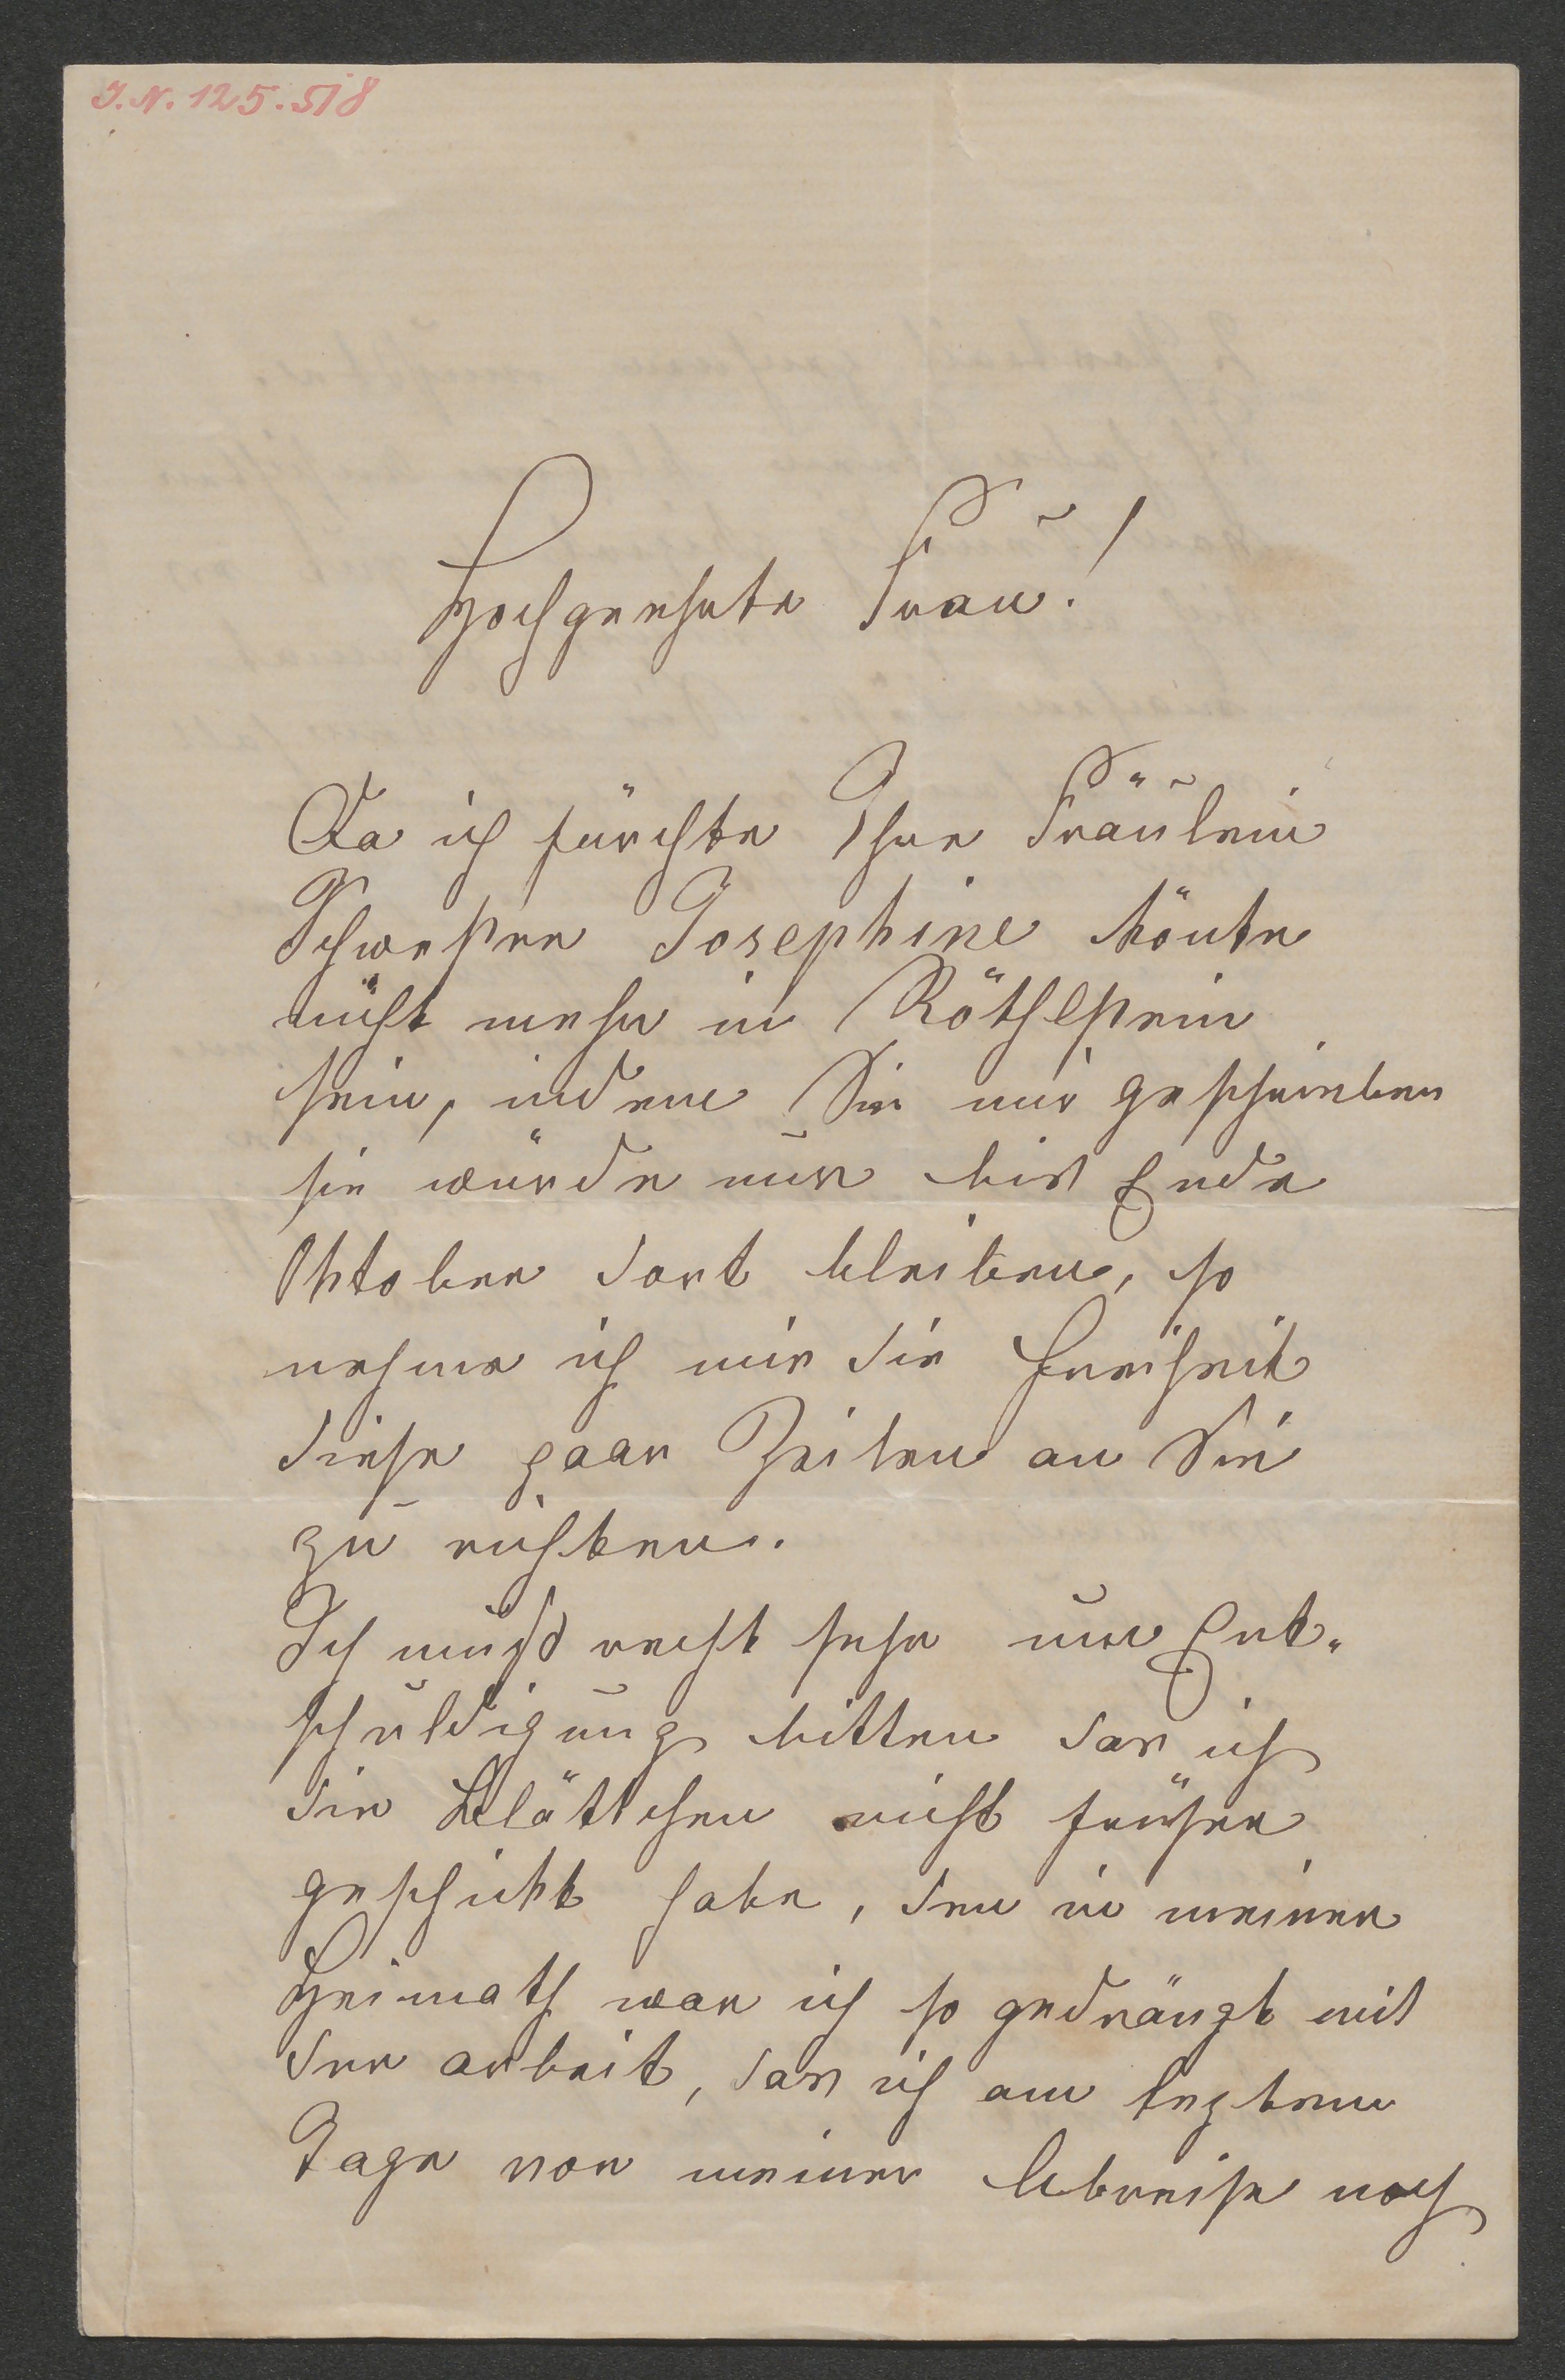 J. N. 125.518
Hochgeehrte Frau!
Da ich fürchte Ihre Fräulein
Schwester Josephine könte
nicht mehr in Röthelstein
sein, indem Sie mir geschrieben
sie würde nur bis Ende
Oktober dort bleiben, so
nehme ich mir die Freiheit
diese paar Zeilen an Sie
zu richten.
Ich muß recht sehr um Ent-
schuldigung bitten das ich
die Blättchen nicht früher
geschikt habe, den in meiner
Heimath war ich so gedrängt mit
der arbeit, das ich am lezten
Tage vor meiner Abreise noch